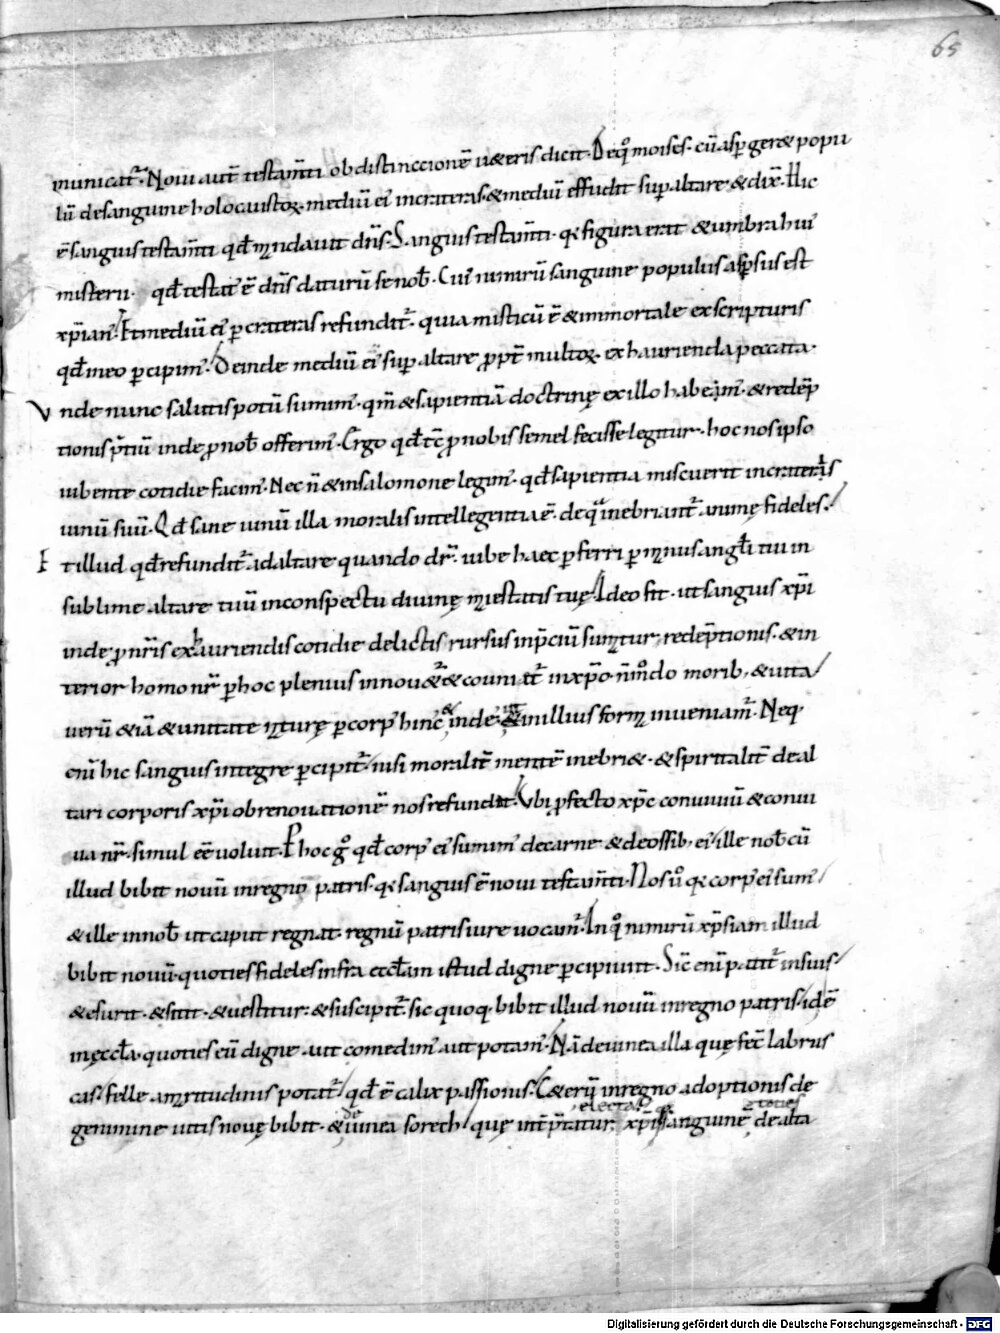 65
municat̄. Noui aut̄ testam̄ti ob distinccionē ueteris dicit. De q̊ moises. cū asꝑgeret popu
lū de sanguine holocaustoꝝ. mediū ei' in crateras. & mediū effudit suꝑ altare & dix̄. Hic
ē sanguis testam̄ti qđ mandauit dn̄s. Sanguis testam̄ti. qi figura erat & umbra hui'
misterii. qđ testat' ē dn̄s daturū se nob̄. Cui' nimirū sanguine populus asꝑsus est
xp̄ian'. Et mediū ei' ꝑ crateras refundit̄. quia misticū ē & inmortale ex scripturis
qđ in eo ꝑcipim'. Deinde mediū ei' suꝑ altare ꝓpt̄ multoꝝ exhaurienda peccata.
Vnde nunc salutis potū sumim'. qm̄ & sapientiā doctrinę ex illo habem'. & redēp
tionis p̄tiū inde ꝓ nob̄ offerim'. Ergo qđ tc̄ ꝓ nobis semel fecisse legitur. hoc nos ipso
iubente cotidie facim'. Nec n̄ & in salomone legim'. qđ sapientia miscuerit in crateris
uinū suū. Qđ sane uinū illa moralis intellegentia ē. de qua inebriant̄ animę fideles.
Et illud qđ refundit̄ ad altare quando dr̄. iube haec ꝑferri ꝑ manus angl̄i tui in
sublime altare tuū in conspectu diuinę maiestatis tuę. Adeo fit. ut sanguis xp̄i
inde ꝓ nr̄is exhauriendis cotidie delictis rursus in p̄ciū sumatur redēptionis. & in
terior homo nr̄ ꝑ hoc plenius innouet̄ & couniat̄ in xp̄o n̄ m̊do morib; & uita
uerū & iā & unitate naturę ꝑ corp' hinc & inde in illius forma inueniam̄. Neq
enī hic sanguis integre ꝑcipit̄ nisi moralit̄ mentē inebriet. & spiritalit̄ de al
tari corporis xp̄i ob renouationē nos refundat. Vbi ꝓfecto xp̄c conuiuiū & conui
ua nr̄ simul ēē uoluit. P hoc g̊ qđ corp' ei' sumim' de carne & de ossib; ei' ille nob̄cū
illud bibit nouū in regno patris. qi sanguis ē noui testam̄ti. Nos ů qi corp' ei' sum'
& ille in nob̄ ut caput regnat. regnū patris iure uocam̄. In q̊ nimirū xp̄s iam illud
bibit nouū. quoties fideles infra eccl̄am istud digne ꝑcipiunt. Sic̄ enī patit̄ in suis
& esurit. & sitit. & uestitur. & suscipit̄. sic quoq. bibit illud nouū in regno patris idē
in ęccl̄a. quoties eū digne aut comedim' aut potam'. Nā de uinea illa quę fec̄ labrus
cas. felle amaritudinis potat'. qđ ē calix passionis. Ceterū in regno adoptionis de
electa
genimine uitis nouę bibit. & de uinea sorech quę int̄p̄tatur xp̄s sanguinē de alta